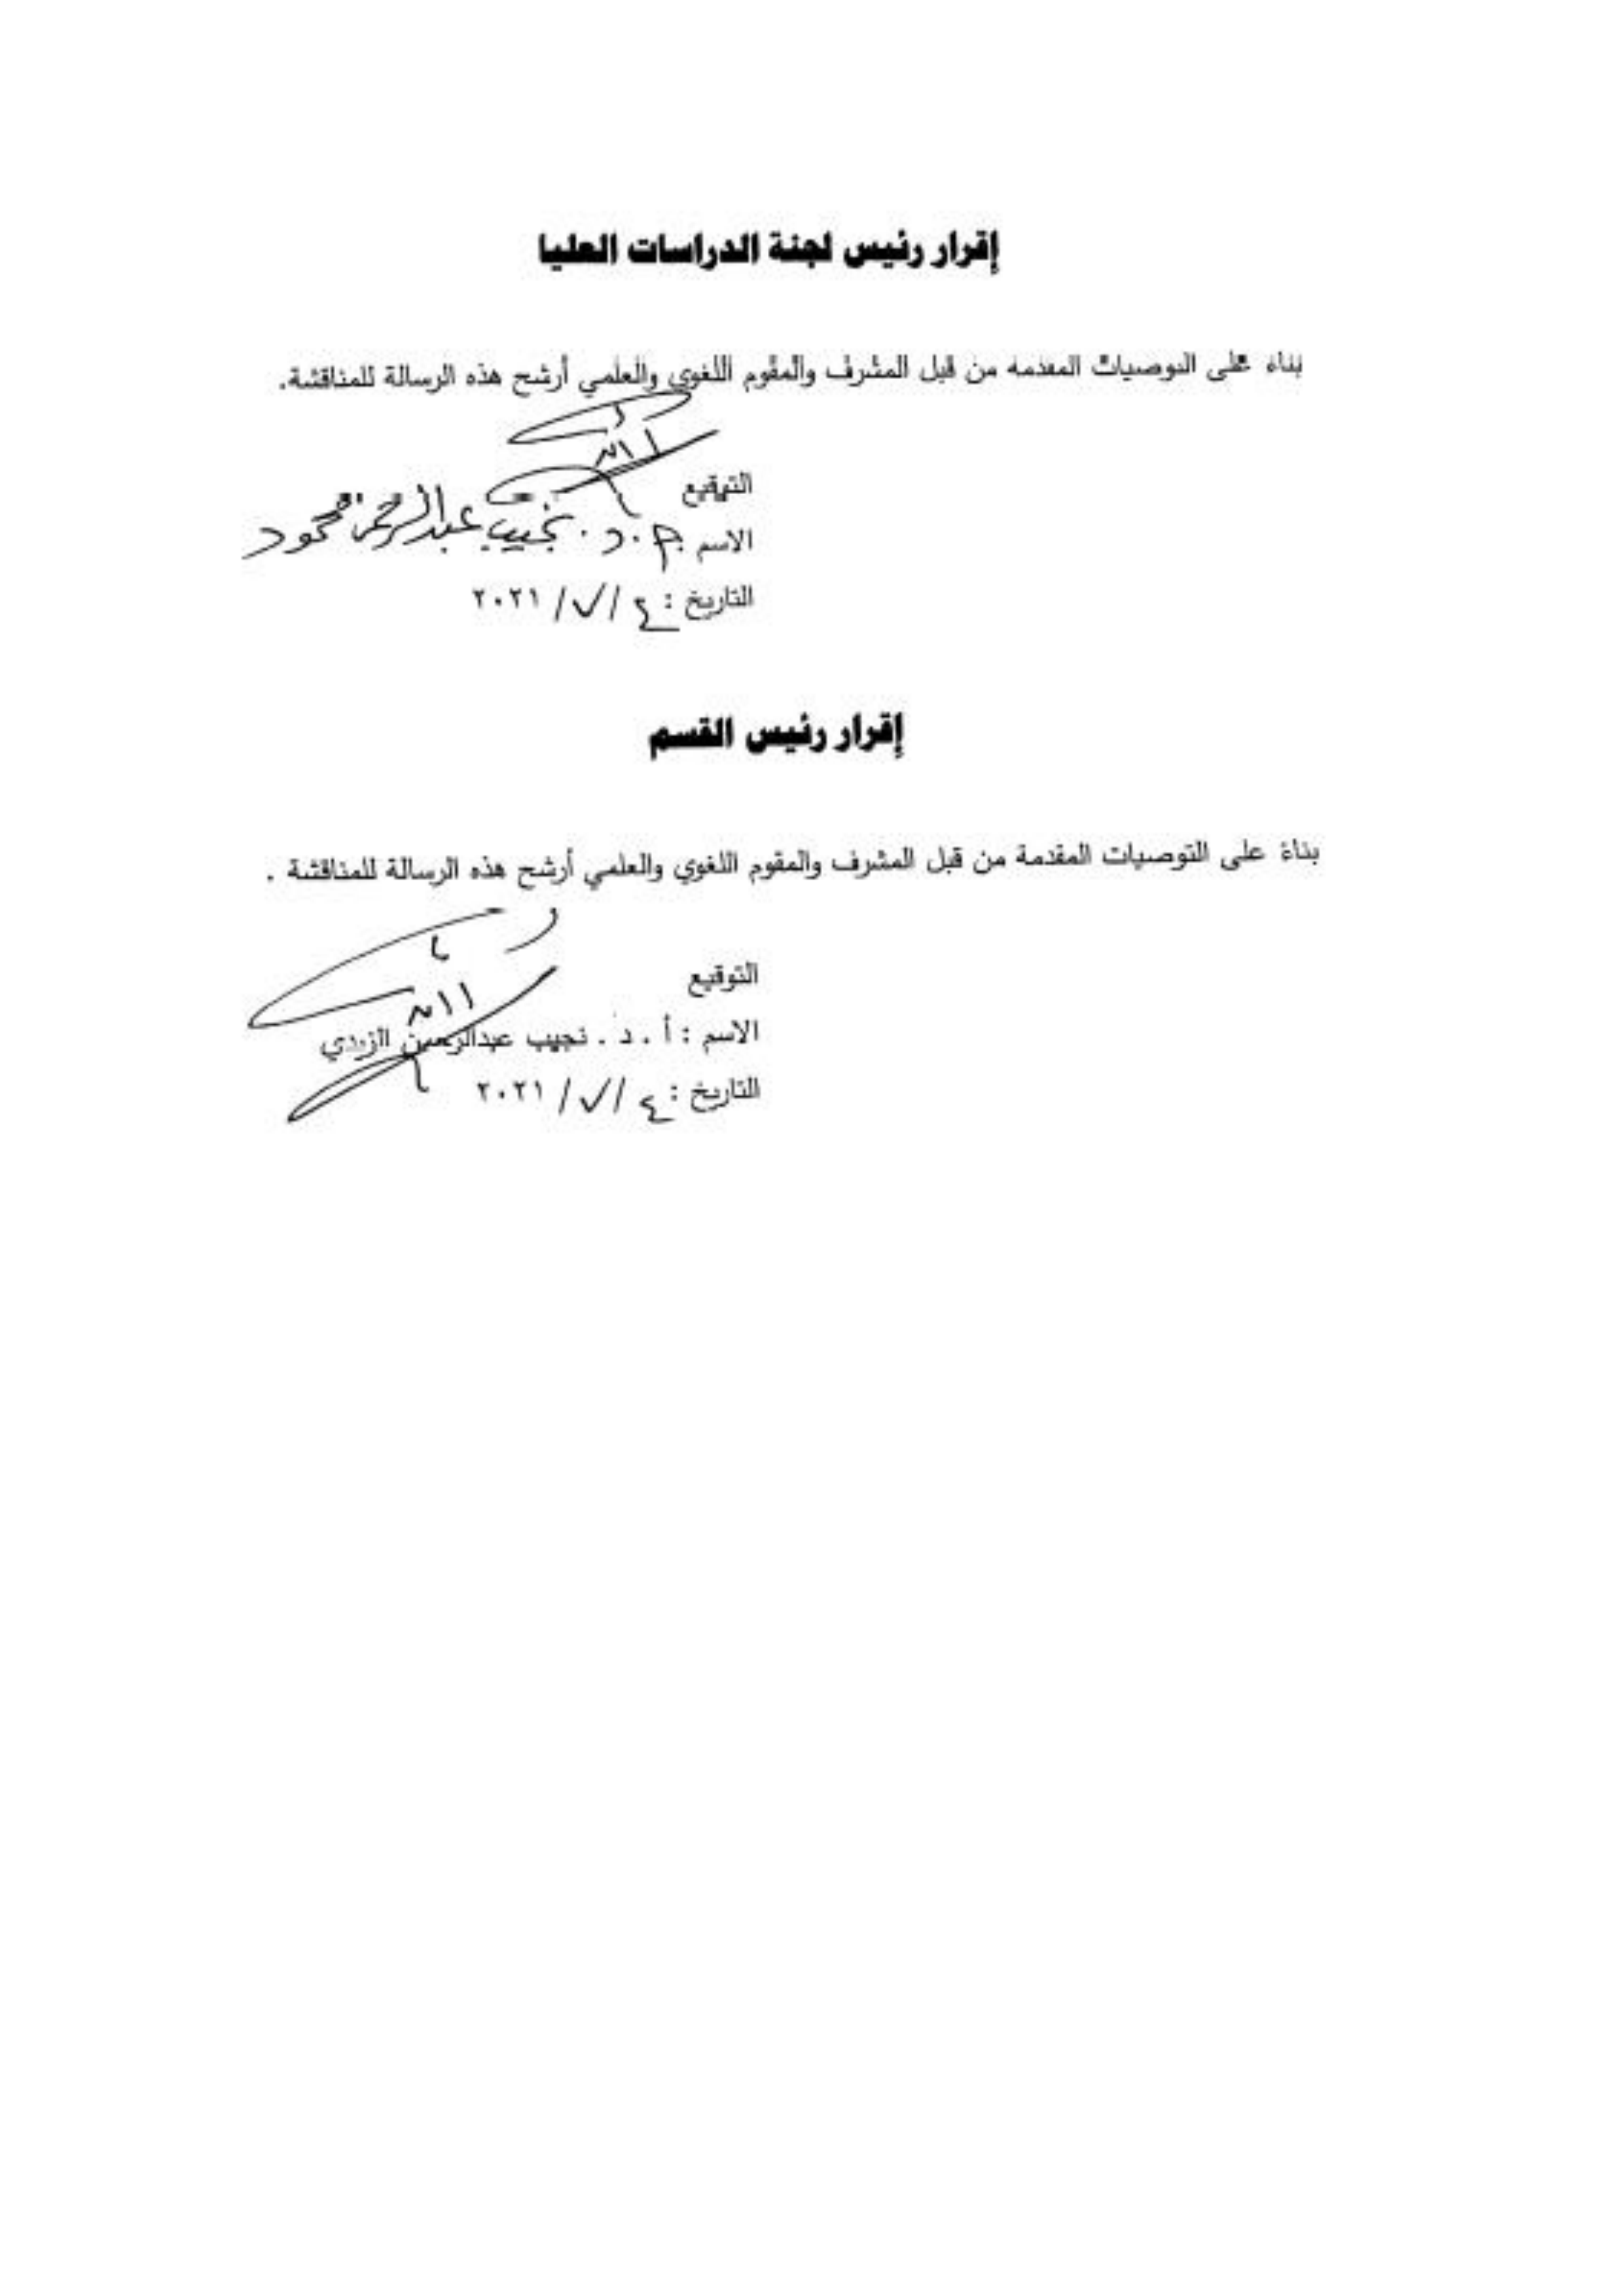 إقرار رئيس لجنة الدراسات العليا
بناء على التوصيات المقدمة من قبل المشرف والمقوم اللغوي والعلمي أرشح هذه الرسالة للمناقشة.
التوقيع
الاسم أ.د. نجيب عبدالرحمن محمود
التاريخ : ٤ /٧/ ٢٠٢١
إقرار رئيس القسم
بناءً على التوصيات المقدمة من قبل المشرف والمقوم اللغوي والعلمي أرشح هذه الرسالة للمناقشة .
التوقيع
الاسم : أ . د . نجيب عبدالرحمن الزيدي
التاريخ : ٤ /٧/ ٢٠٢١